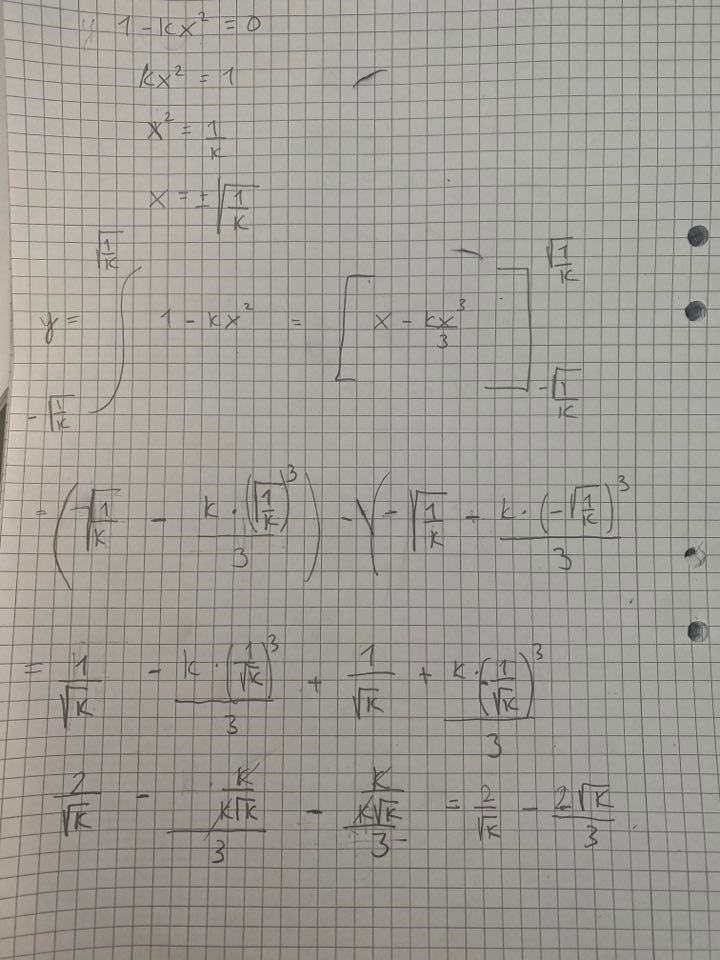 y 1 - kx² = 0
kx² = 1
x² = 1/k
x = ± √(1/k)
y = ∫_{-√(1/k)}^{√(1/k)} 1 - kx² = [x - kx³/3]_{-√(1/k)}^{√(1/k)}
= (√(1/k) - k · (√(1/k))³/3) - (-√(1/k) + k · (-√(1/k))³/3
= 1/√k - k · (1/√k)³/3 + 1/√k + k · (-1/√k)³/3
2/√k - (k/(k√k))/3 - (k/(k√k))/3 = 2/√k - 2√k/3